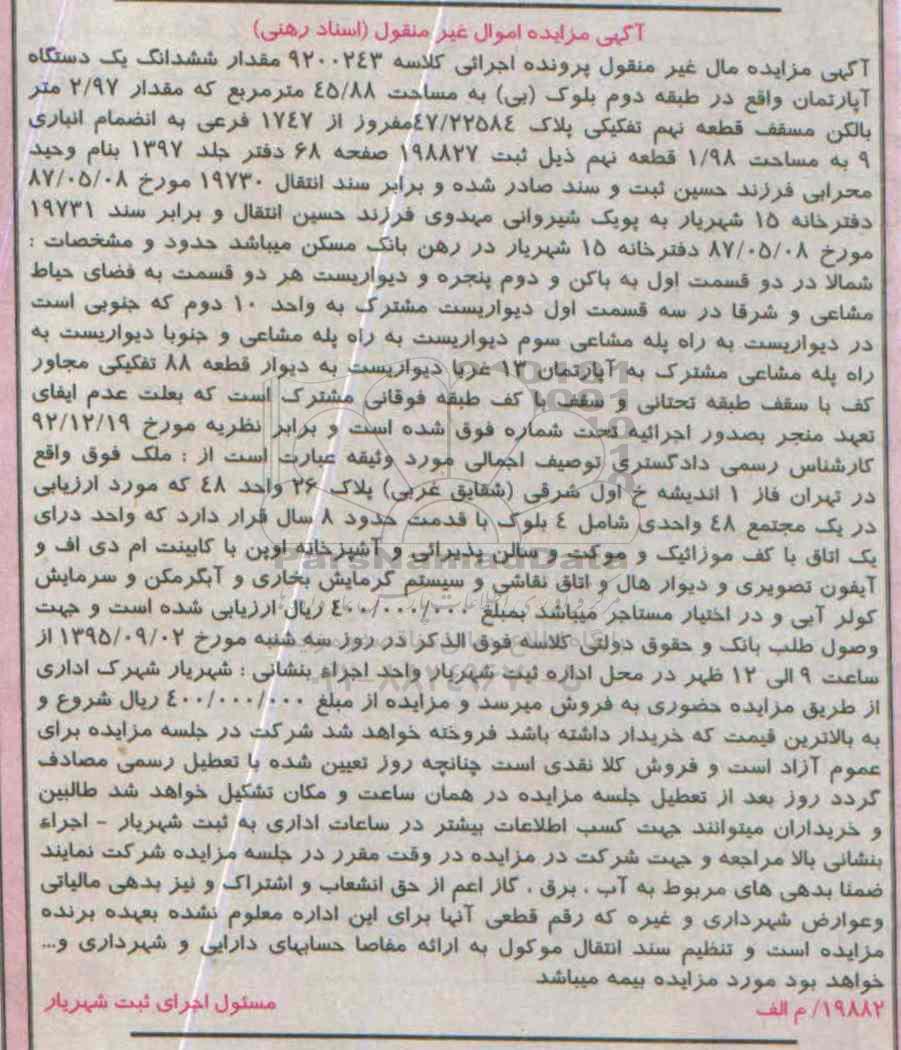 آگهی مزایده اموال غیر منقول (اسناد رهنی)
آگهی مزایده مال غیر منقول پرونده اجرائی کلاسه ۹۲۰۰۲٤۳ مقدار ششدانگ یک دستگاه
آپارتمان واقع در طبقه دوم بلوک (بی) به مساحت ٤٥/۸۸ مترمربع که مقدار ۲/۹۷ متر
بالکن مسقف قطعه نهم تفکیکی پلاک ٤۷/۲۲٥۸٤مفروز از ۱۷٤۷ فرعی به انضمام انباری
۹ به مساحت ۱/۹۸ قطعه نهم ذیل ثبت ۱۹۸۸۲۷ صفحه ۶۸ دفتر جلد ۱۳۹۷ بنام وحید
محرابی فرزند حسین ثبت و سند صادر شده و برابر سند انتقال ۱۹۷۳۰ مورخ ۸۷/۰٥/۰۸
دفترخانه ۱٥ شهریار به پوپک شیروانی مهدوی فرزند حسین انتقال و برابر سند ۱۹۷۳۱
مورخ ۸۷/۰٥/۰۸ دفترخانه ۱٥ شهریار در رهن بانک مسکن میباشد حدود و مشخصات :
شمالا در دو قسمت اول به باکن و دوم پنجره و دیواریست هر دو قسمت به فضای حیاط
مشاعی و شرقا در سه قسمت اول دیواریست مشترک به واحد ۱۰ دوم که جنوبی است
در دیواریست به راه پله مشاعی سوم دیواریست به راه پله مشاعی و جنوبا دیواریست به
راه پله مشاعی مشترک به آپارتمان ۱۳ غربا دیواریست به دیوار قطعه ۸۸ تفکیکی مجاور
کف با سقف طبقه تحتانی و سقف با کف طبقه فوقانی مشترک است که بعلت عدم ایفای
تعهد منجر بصدور اجرائیه تحت شماره فوق شده است و برابر نظریه مورخ ۹۲/۱۲/۱۹
کارشناس رسمی دادگستری توصیف اجمالی مورد وثیقه عبارت است از : ملک فوق واقع
در تهران فاز ۱ اندیشه خ اول شرقی (شقایق غربی) پلاک ۲۶ واحد ٤۸ که مورد ارزیابی
در یک مجتمع ٤۸ واحدی شامل ٤ بلوک با قدمت حدود ۸ سال قرار دارد که واحد درای
یک اتاق با کف موزائیک و موکت و سالن پذیرائی و آشپزخانه اوپن با کابینت ام دی اف و
آیفون تصویری و دیوار هال و اتاق نقاشی و سیستم گرمایش بخاری و آبگرمکن و سرمایش
کولر آبی و در اختیار مستاجر میباشد بمبلغ ٤۰۰/۰۰۰/۰۰۰ ریال ارزیابی شده است و جهت
وصول طلب بانک و حقوق دولتی کلاسه فوق الذکر در روز سه شنبه مورخ ۱۳۹٥/۰۹/۰۲ از
ساعت ۹ الی ۱۲ ظهر در محل اداره ثبت شهریار واحد اجراء بنشانی : شهریار شهرک اداری
از طریق مزایده حضوری به فروش میرسد و مزایده از مبلغ ٤۰۰/۰۰۰/۰۰۰ ریال شروع و
به بالاترین قیمت که خریدار داشته باشد فروخته خواهد شد شرکت در جلسه مزایده برای
عموم آزاد است و فروش کلا نقدی است چنانچه روز تعیین شده با تعطیل رسمی مصادف
گردد روز بعد از تعطیل جلسه مزایده در همان ساعت و مکان تشکیل خواهد شد طالبین
و خریداران میتوانند جهت کسب اطلاعات بیشتر در ساعات اداری به ثبت شهریار - اجراء
بنشانی بالا مراجعه و جهت شرکت در مزایده در وقت مقرر در جلسه مزایده شرکت نمایند
ضمنا بدهی های مربوط به آب ، برق ، گاز اعم از حق انشعاب و اشتراک و نیز بدهی مالیاتی
وعوارض شهرداری و غیره که رقم قطعی آنها برای این اداره معلوم نشده بعهده برنده
مزایده است و تنظیم سند انتقال موکول به ارائه مفاصا حسابهای دارایی و شهرداری و...
خواهد بود مورد مزایده بیمه میباشد
۱۹۸۸۲/ م الف
مسئول اجرای ثبت شهریار
ParsNamadData